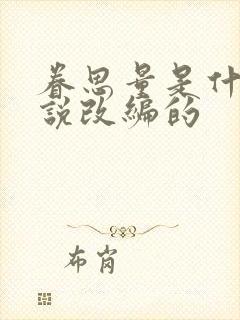 眷思量是什
說改編的
布肖